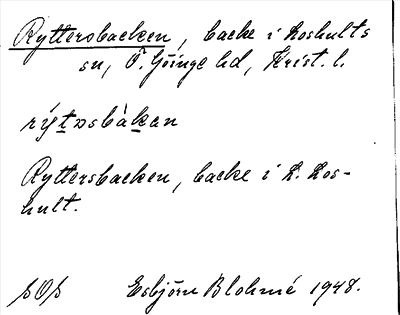 Ryttersbacken, backe i Loshults
sn, Ö. Göinge hd, Krist. l.
rýtəsbàkan
Ryttersbacken, backe i L. Los-
hult.
sOs Esbjörn Blohmé 1948.